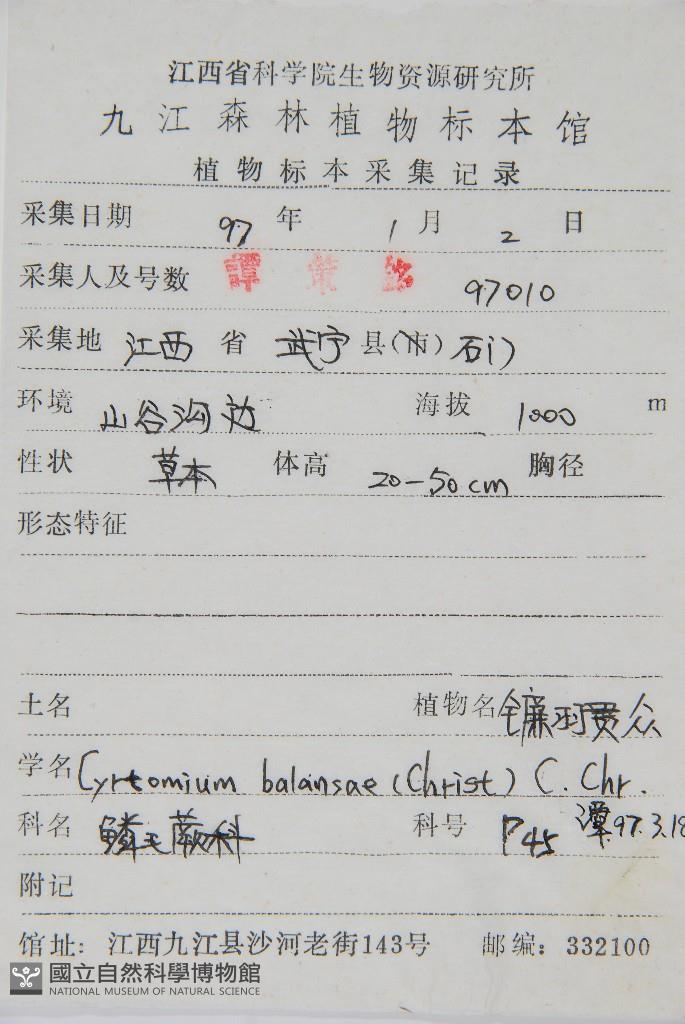 江西省科学院生物资源研究所
九江森林植物标本馆
植物标本采集记录
采集日期 97 年 1 月 2 日
采集人及号数 譚策銘 97010
采集地 江西 省 武宁 县(市) 石门
环境 山谷沟边 海拔 1000 m
性状 草本 体高 20-50cm 胸径
形态特征
土名 植物名 镰羽贯众
学名 Cyrtomium balansae (Christ) C. Chr.
科名 鳞毛蕨科 科号 P45 潭 97.3.18
附记
馆址: 江西九江县沙河老街143号 邮编: 332100
國立自然科學博物館
NATIONAL MUSEUM OF NATURAL SCIENCE